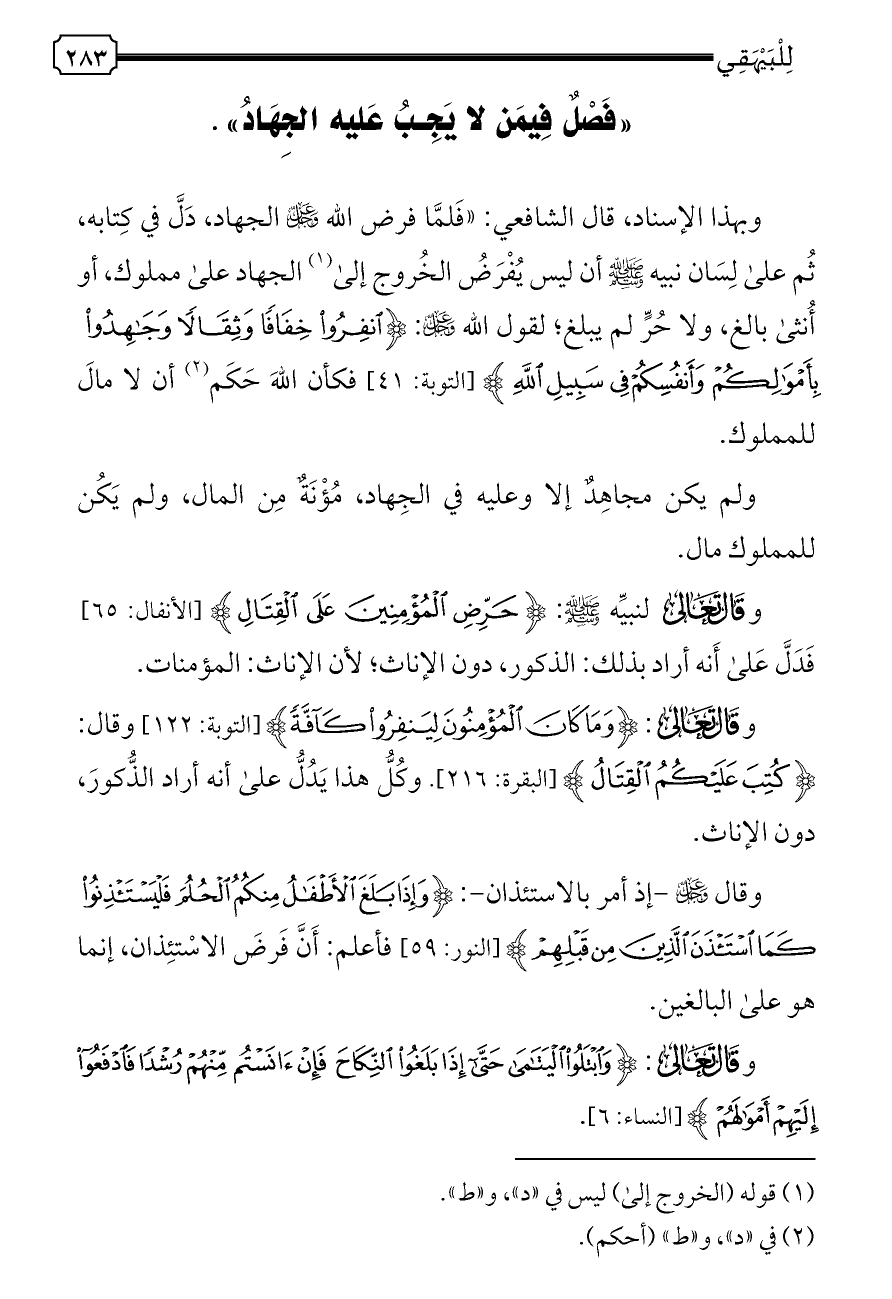 لِلْبَيْهَقِي
٢٨٣
«فَصْلٌ فِيمَن لا يَجِبُ عَليه الجِهَادُ» .
وبهذا الإسناد، قال الشافعي: «فَلمَّا فرض الله ﷿ الجهاد، دَلَّ في كِتابه،
ثُم علىٰ لِسَان نبيه ﷺ أن ليس يُفْرَضُ الخُروج إلىٰ(١) الجهاد علىٰ مملوك، أو
أُنثىٰ بالغ، ولا حُرٍّ لم يبلغ؛ لقول الله ﷿: ﴿ٱنفِرُوا۟ خِفَافًا وَثِقَالًا وَجَٰهِدُوا۟
بِأَمْوَٰلِكُمْ وَأَنفُسِكُمْ فِى سَبِيلِ ٱللَّهِ﴾ [التوبة: ٤١] فكأن اللهَ حَكَم(٢) أن لا مالَ
للمملوك.
ولم يكن مجاهِدٌ إلا وعليه في الجِهاد، مُؤْنَةٌ مِن المال، ولم يَكُن
للمملوك مال.
وقَالَ تَعَالَىٰ لنبيِّه ﷺ: ﴿حَرِّضِ ٱلْمُؤْمِنِينَ عَلَى ٱلْقِتَالِ﴾ [الأنفال: ٦٥]
فَدَلَّ عَلىٰ أَنه أراد بذلك: الذكور، دون الإناث؛ لأن الإناث: المؤمنات.
وقَالَ تَعَالَىٰ: ﴿وَمَا كَانَ ٱلْمُؤْمِنُونَ لِيَنفِرُوا۟ كَآفَّةً﴾ [التوبة: ١٢٢] وقال:
﴿كُتِبَ عَلَيْكُمُ ٱلْقِتَالُ﴾ [البقرة: ٢١٦]. وكُلُّ هذا يَدُلُّ علىٰ أنه أراد الذُّكورَ،
دون الإناث.
وقال ﷿ -إذ أمر بالاستئذان-: ﴿وَإِذَا بَلَغَ ٱلْأَطْفَٰلُ مِنكُمُ ٱلْحُلُمَ فَلْيَسْتَـْٔذِنُوا۟
كَمَا ٱسْتَـْٔذَنَ ٱلَّذِينَ مِن قَبْلِهِمْ﴾ [النور: ٥٩] فأعلم: أَنَّ فَرضَ الاسْتئِذان، إنما
هو علىٰ البالغين.
وقَالَ تَعَالَىٰ: ﴿وَٱبْتَلُوا۟ ٱلْيَتَٰمَىٰ حَتَّىٰٓ إِذَا بَلَغُوا۟ ٱلنِّكَاحَ فَإِنْ ءَانَسْتُم مِّنْهُمْ رُشْدًا فَٱدْفَعُوٓا۟
إِلَيْهِمْ أَمْوَٰلَهُمْ﴾ [النساء: ٦].
(١) قوله (الخروج إلىٰ) ليس في «د»، و«ط».
(٢) في «د»، و«ط» (أحكم).